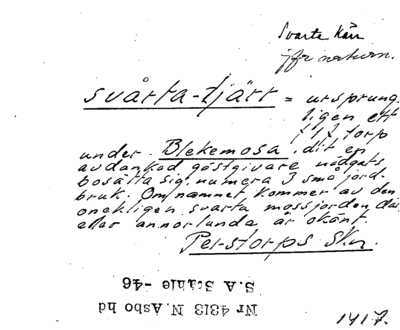 Svarta Kärr
jfr naturn.
svårta-tjärr = ursprung
ligen ett
1/17 torp
under Blekemosa, dit en
avdankad gästgivare nödgats
bosätta sig. numera 3 små jord-
bruk. Om namnet kommer av den
onekligen svarta mossjorden där
eller annorlunda är okänt.
Perstorps Skn.
S. A. Ståhle -46
Nr 4313 N. Åsbo hd
1417.